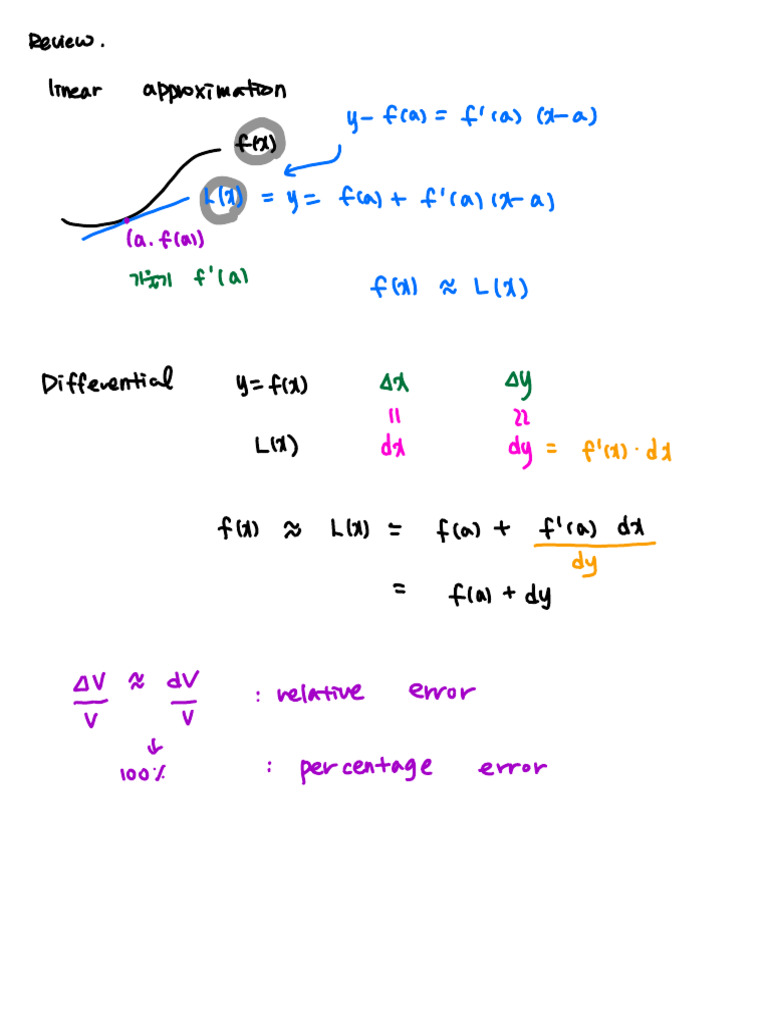 Review.
linear approximation
y - f(a) = f'(a) (x-a)
f(x)
L(x) = y = f(a) + f'(a) (x-a)
(a. f(a))
기울기 f'(a)
f(x) ≈ L(x)
Differential y = f(x) Δx Δy
= ≈
L(x) dx dy = f'(x) · dx
f(x) ≈ L(x) = f(a) + f'(a) dx
dy
= f(a) + dy
ΔV/V ≈ dV/V : relative error
↓
100% : percentage error